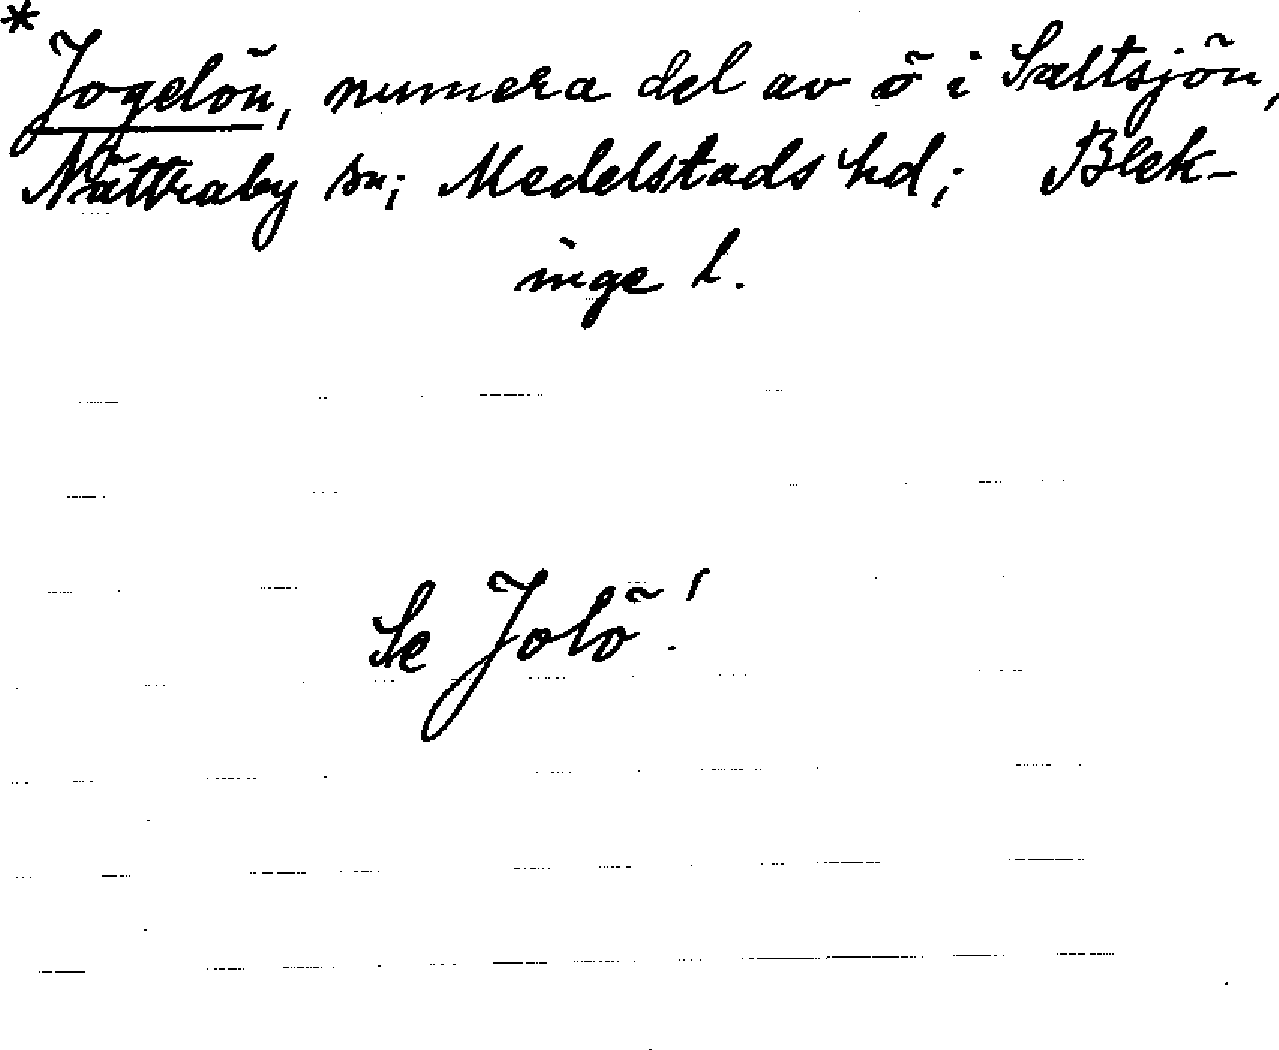 * Jogelön, numera del av ö i Saltsjön,
Nättraby sn; Medelstads hd; Blek-
inge l.
Se Jolö!